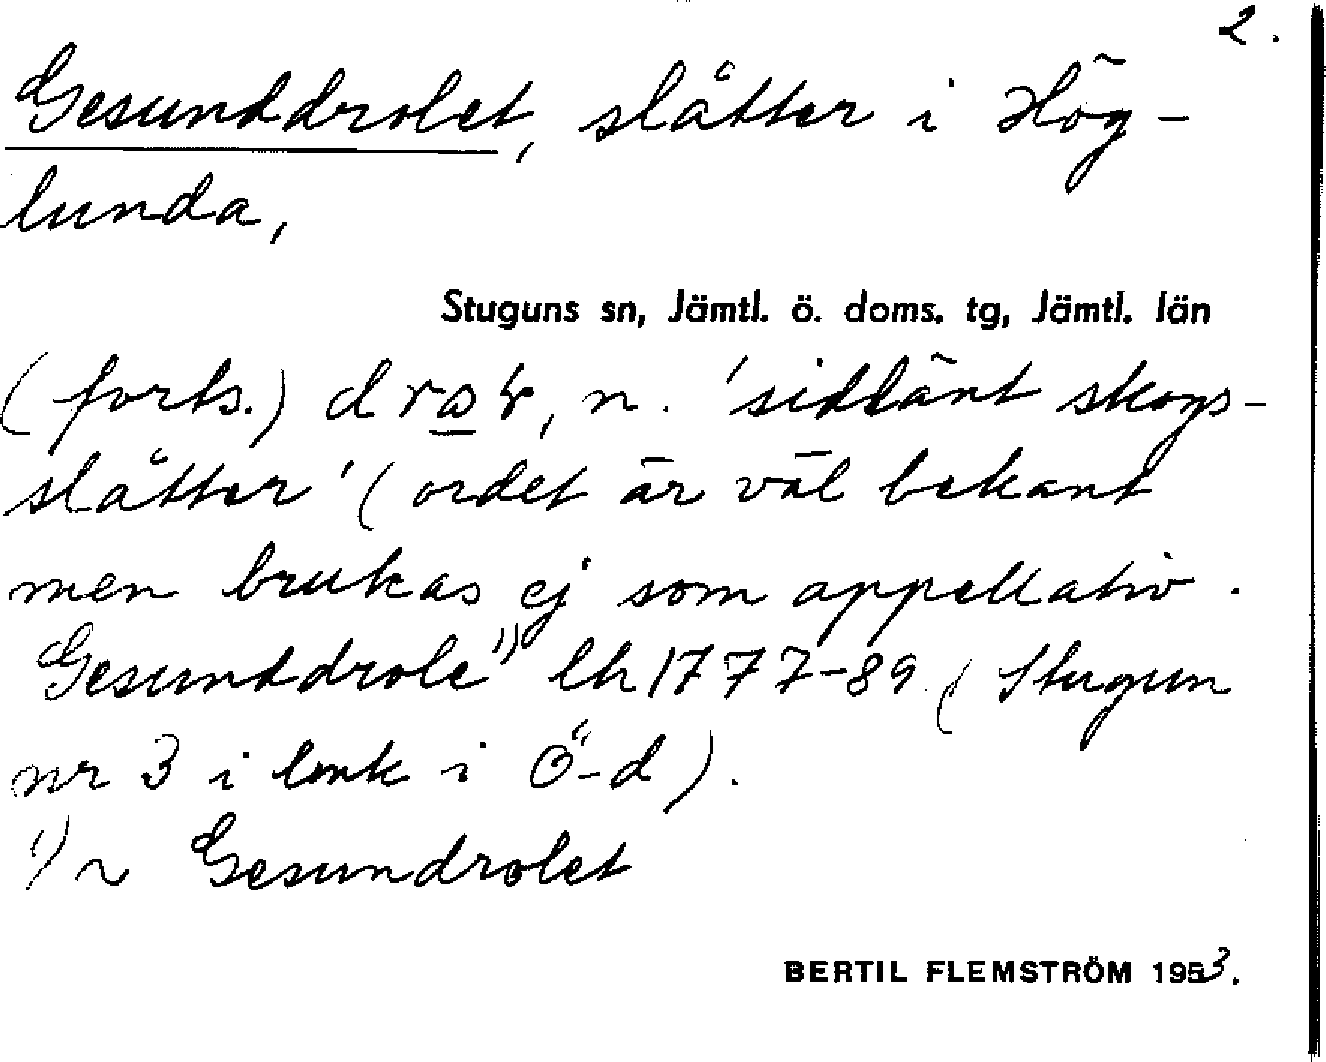 2.
Gesunddrolet, slåtter i Hög-
lunda,
Stuguns sn, Jämtl. ö. doms. tg, Jämtl. län
(forts.) n. 'sidlänt skogs-
slåtter' (ordet är väl bekant
men brukas ej som appellativ.
Gesunddrole¹⁾ lh 1777-89 (Stugun
nr 3 i lmk i Ö-d).
¹⁾ ~ Gesundrolet
BERTIL FLEMSTRÖM 1953.